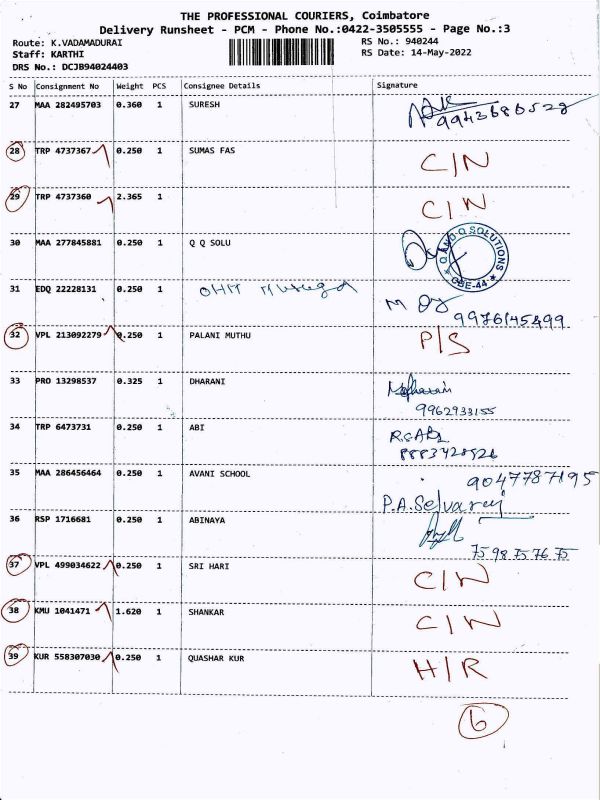 THE PROFESSIONAL COURIERS, Coimbatore
Delivery Runsheet - PCM - Phone No.:0422-3505555 - Page No.:3
Route: K.VADAMADURAI RS No.: 940244
Staff: KARTHI RS Date: 14-May-2022
DRS No.: DCJB94024403
S No Consignment No Weight PCS Consignee Details Signature
27 MAA 282495703 0.360 1 SURESH
28 TRP 4737367 0.250 1 SUMAS FAS C/N
29 TRP 4737360 2.365 1 C/N
30 MAA 277845881 0.250 1 Q Q SOLU Q AND Q SOLUTIONS CBE-44
31 EDQ 22228131 0.250 1 OHM
32 VPL 213092279 0.250 1 PALANI MUTHU P/S
33 PRO 13298537 0.325 1 DHARANI
9962933155
34 TRP 6473731 0.250 1 ABI
35 MAA 286456464 0.250 1 AVANI SCHOOL 9047787195
P.A.Selvaraj
36 RSP 1716681 0.250 1 ABINAYA
7598757675
37 VPL 499034622 0.250 1 SRI HARI C/N
38 KMU 1041471 1.620 1 SHANKAR C/N
39 KUR 558307030 0.250 1 QUASHAR KUR H/R
6